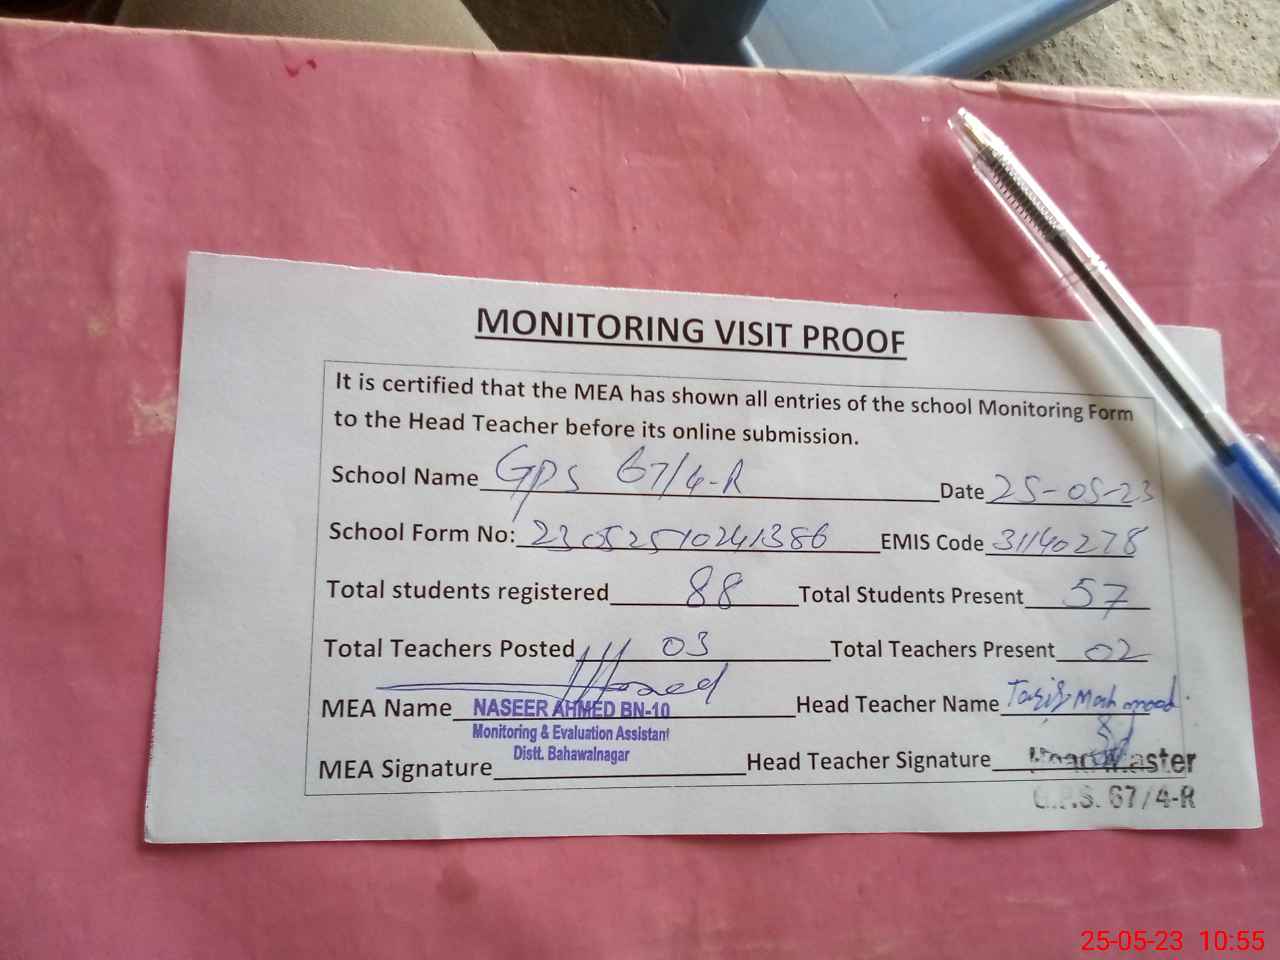 MONITORING VISIT PROOF
It is certified that the MEA has shown all entries of the school Monitoring Form
to the Head Teacher before its online submission.
School Name GPS 67/4-R Date 25-05-23
School Form No: 23052510241386 EMIS Code 31140278
Total students registered 88 Total Students Present 57
Total Teachers Posted 03 Total Teachers Present 02
MEA Name NASEER AHMED BN-10 Head Teacher Name Mahmood
Monitoring & Evaluation Assistant
Distt. Bahawalnagar
MEA Signature Head Teacher Signature
Head Master
G.P.S. 67/4-R
25-05-23 10:55